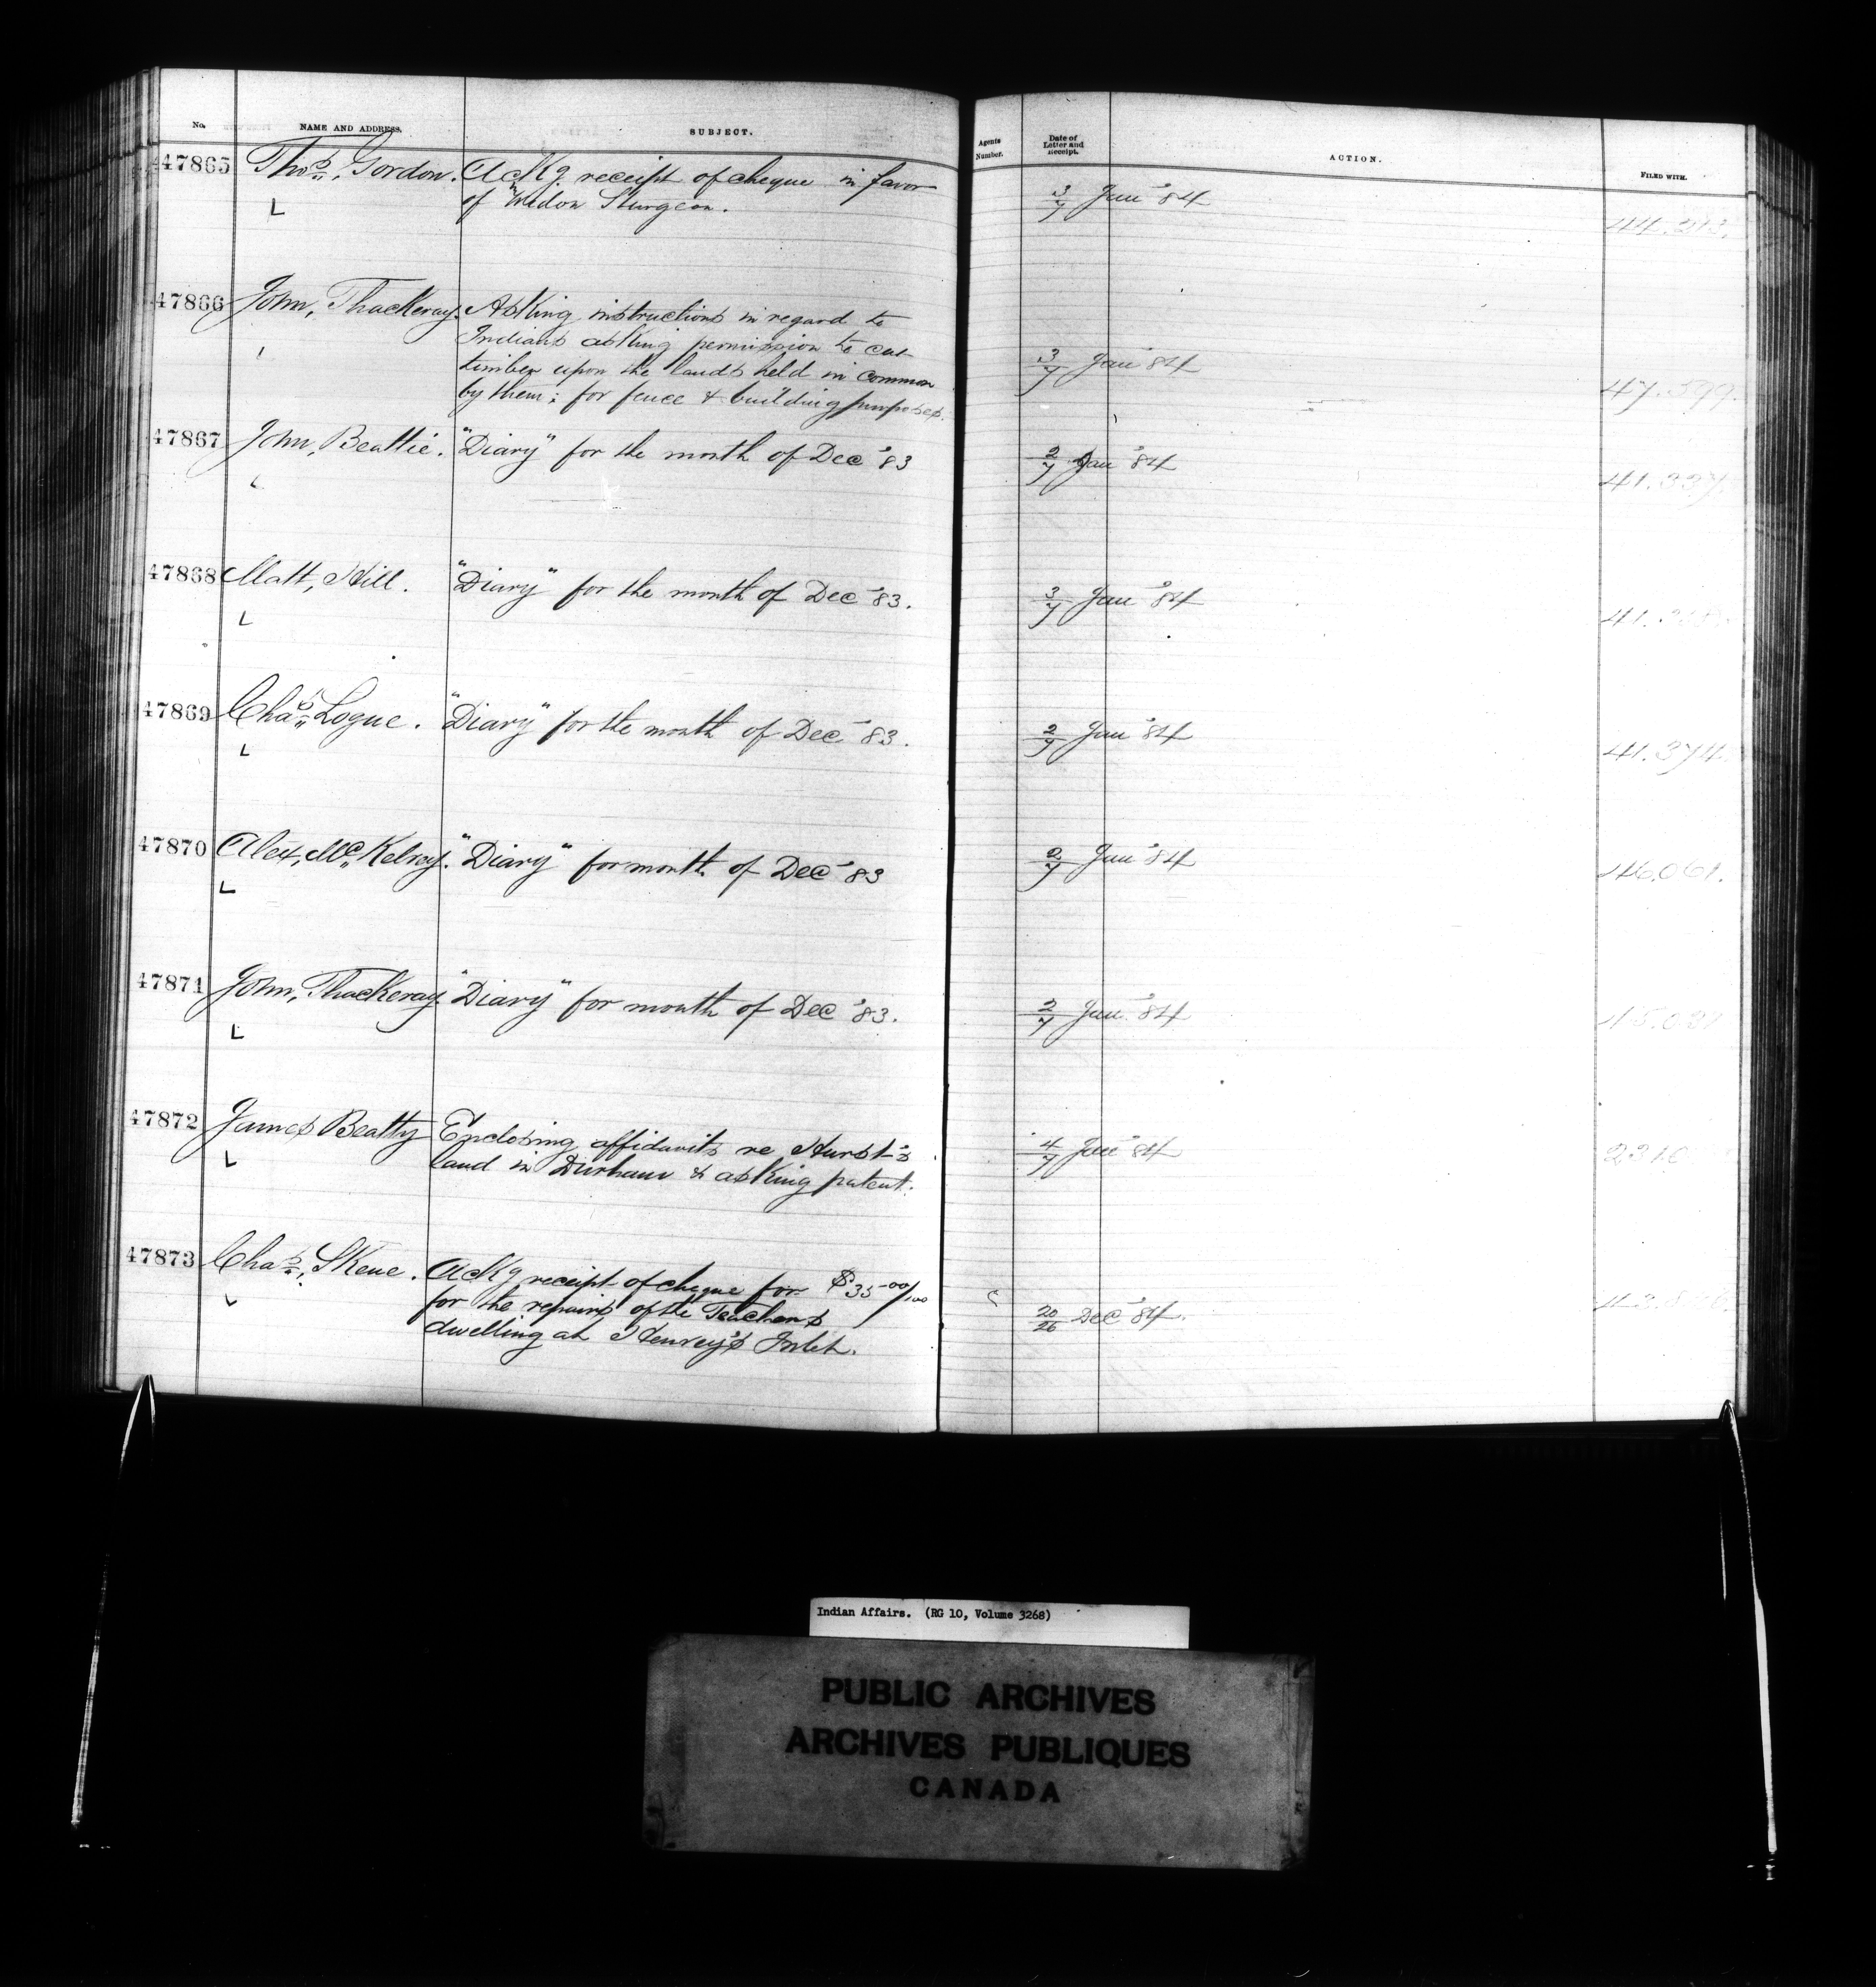 No. NAME AND ADDRESS. SUBJECT. Agents Number. Date of Letter and Receipt. ACTION. FILED WITH.
47865 Thos. Gordon. Ackg receipt of cheque in favor
of Widow Sturgeon. 3/7 Jan '84
47866 John, Thackeray. Asking instructions in regard to
Indians asking permission to cut
timber upon the lands held in common 3/7 Jan '84 47.599.
by them; for fence & building purposes.
47867 John, Beattie. "Diary" for the month of Dec '83 2/7 Jan '84 41.337.
47868 Matt, Hill. "Diary" for the month of Dec '83. 3/7 Jan '84
47869 Chas. Logue. "Diary" for the month of Dec '83. 2/7 Jan '84 41.374.
47870 Alex, McKelvey. "Diary" for month of Dec '83 2/7 Jan '84 46.061.
47871 John, Thackeray. "Diary" for month of Dec '83. 2/7 Jan '84
47872 James Beatty Enclosing affidavits re Hurst's
land in Durham & asking patent. 4/7 Jan '84
47873 Chas., Skene. Ackg receipt of cheque for $35 00/100
for the repairs of the Teachers 20/26 Dec '84.
dwelling at Henvey's Inlet.
Indian Affairs. (RG 10, Volume 3268)
PUBLIC ARCHIVES
ARCHIVES PUBLIQUES
CANADA